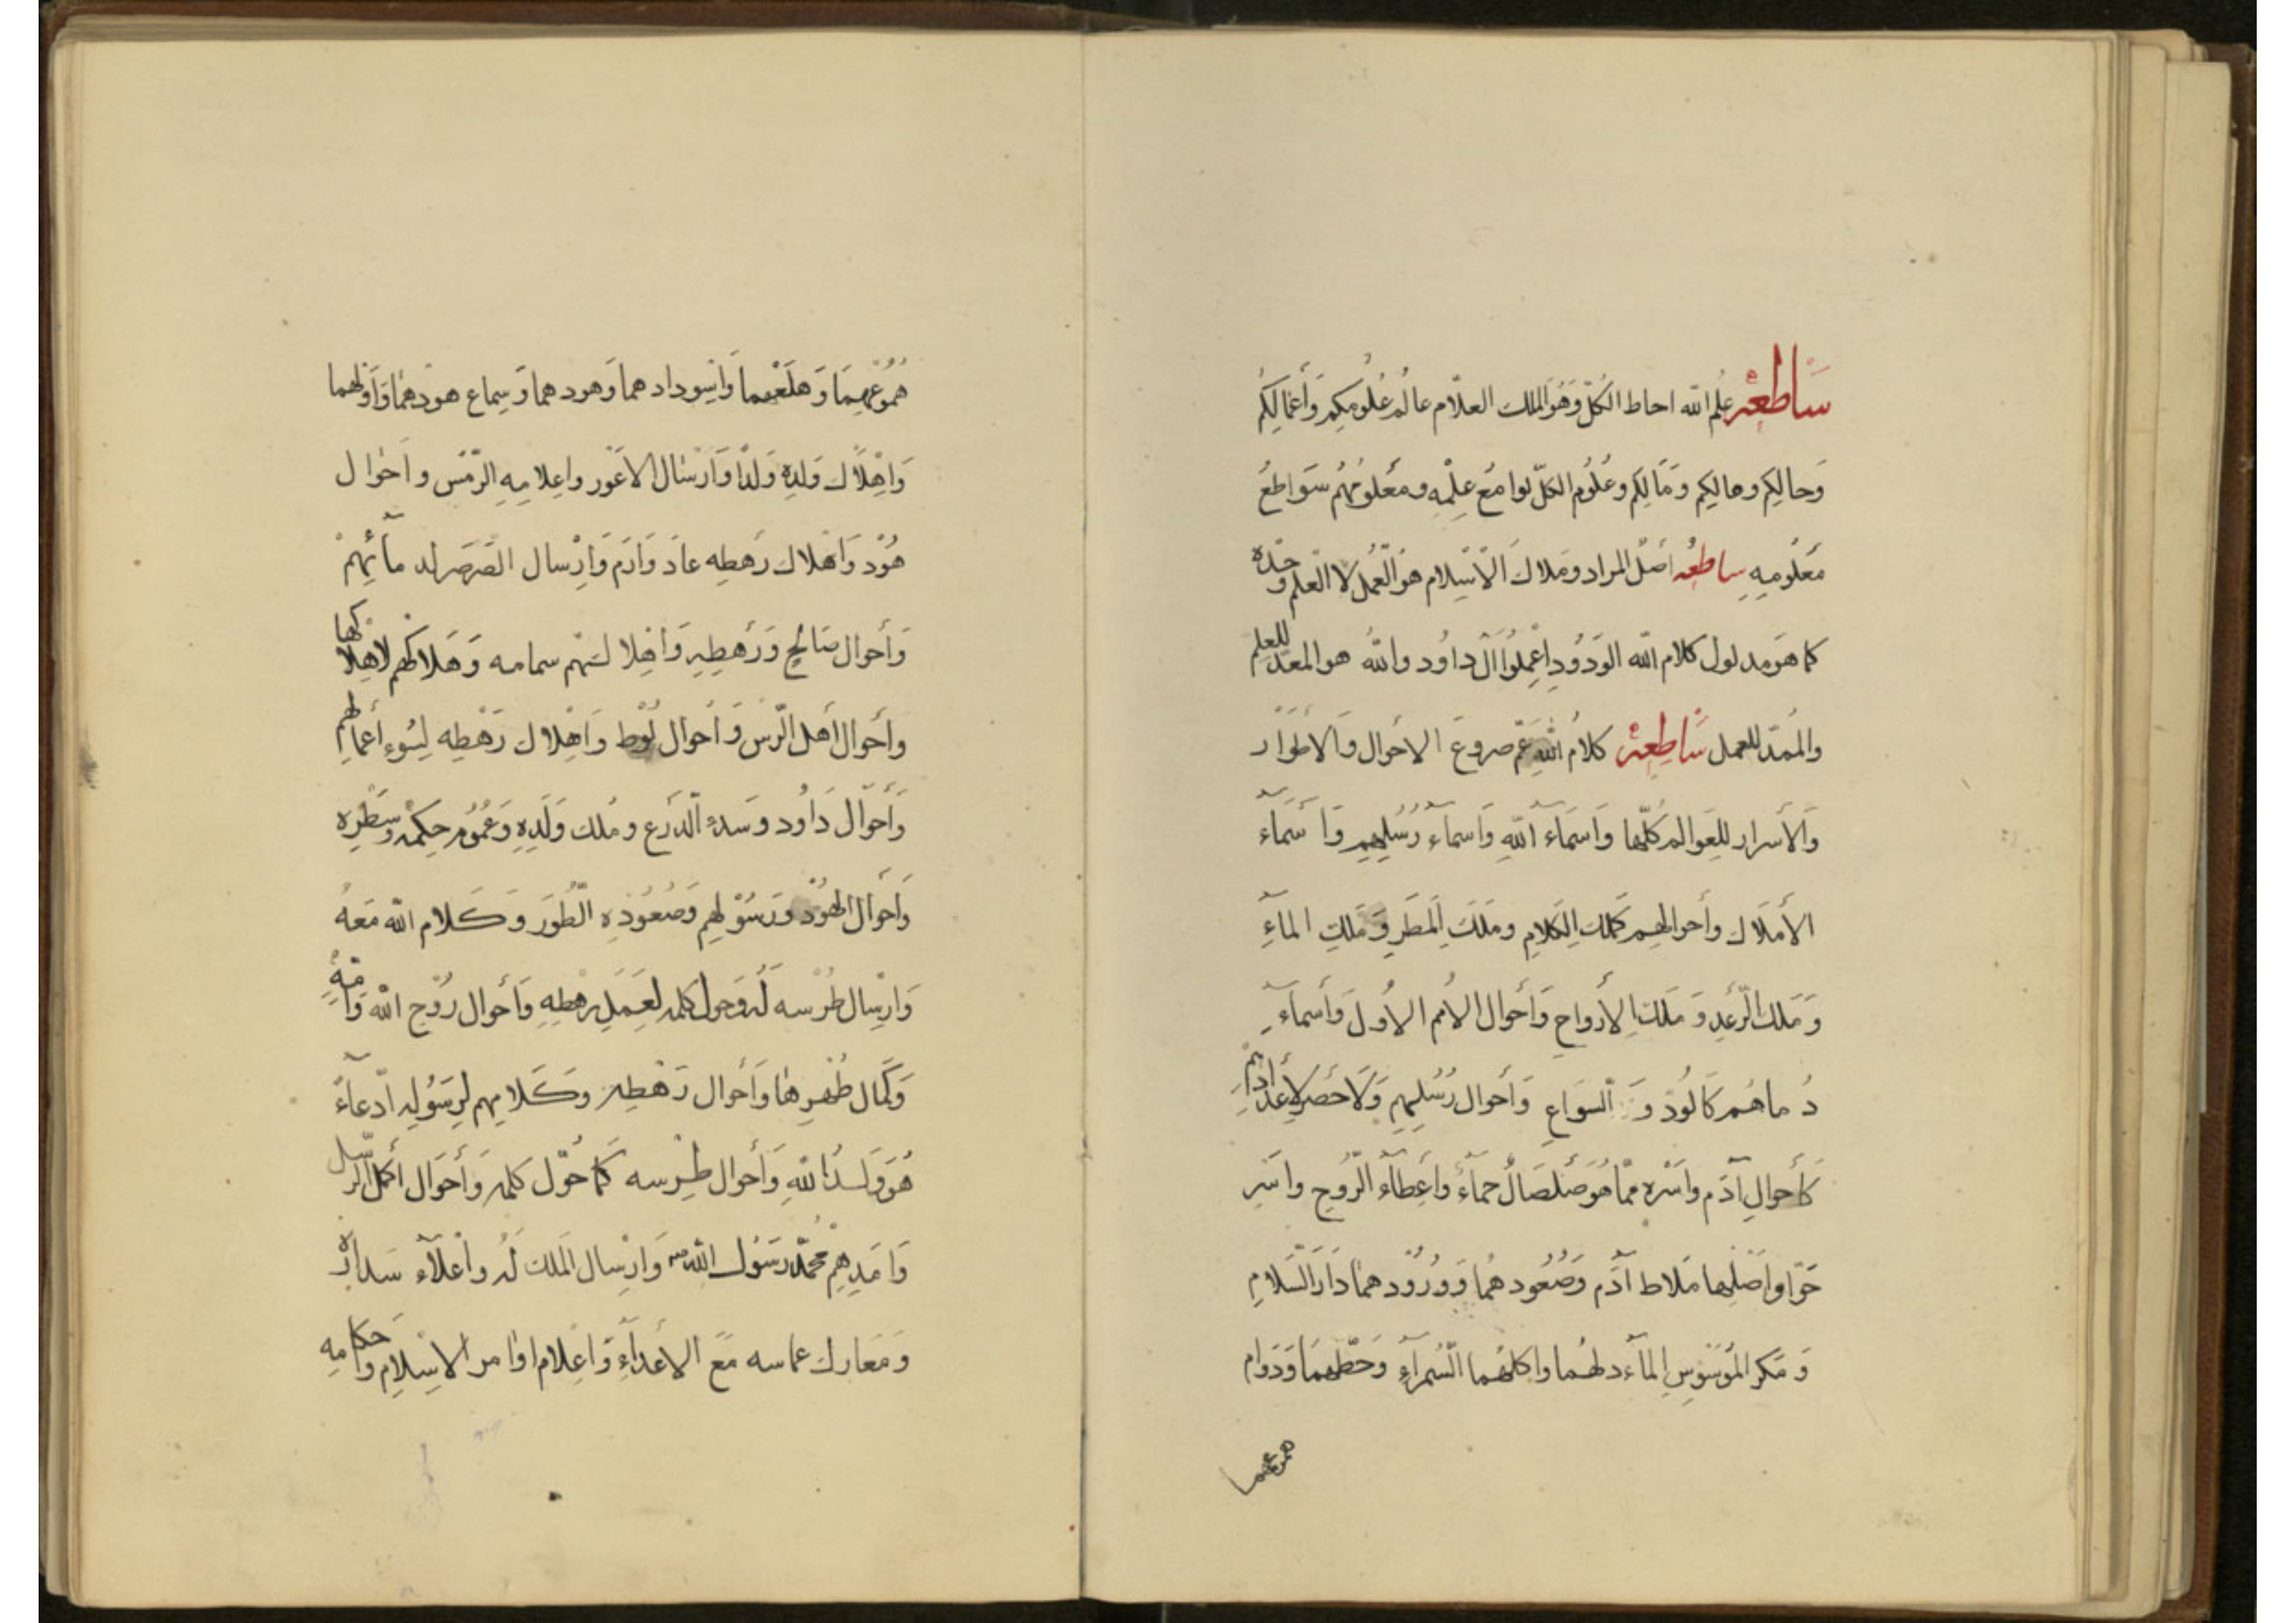 ساطعه علم الله احاط الكل وهو الملك العلام عالم علومكم وأعمالكم
وحالكم ومالكم وعلوم الكل لوامع علمه ومعلومهم سواطع
معلومه ساطعه اصل المراد وملاك الاسلام هو العمل لا العلم وحده
كما هو مدلول كلام الله الودود اعملوا آل داود والله هو المعد للعلم
والممد للعمل ساطعه كلام الله صروع الاحوال والاطوار
والأسرار للعوالم كلها واسماء الله واسماء رسلهم واسماء
الأملاك وأحوالهم كملك الكلام وملك المطر وملك الماء
وملك الرعد وملك الأرواح وأحوال الأمم الأول وأسماء
دماهم كالود والسواع وأحوال رسلهم ولا حصر لأعدادهم
كأحوال آدم واسره مما هو صلصال حماء واعطاء الروح واسر
حوا واصلها ملاط آدم وصعودهما وورودهما دار السلام
ومكر الموسوس المآء لهما واكلهما السمراء وحطهما ودوام
همو عهما
همو عهما وهلعهما واسودادهما وهودهما وسماع هودهما واولهما
واهلاك ولده ولدا وارسال الاعور واعلامه الرمس واحوال
هود واهلاك رهطه عاد وارم وارسال الصرصر لد مآئهم
وأحوال صالح ورهطه واهلا سمامه وهلاكهم لاهلاكها
وأحوال أهل الرس وأحوال لوط واهلاك رهطه لسوء أعمالهم
وأحوال داود وسدء الدرع وملك ولده وعموم حكمه وسطره
وأحوال الهود ورسولهم وصعوده الطور وكلام الله معه
وارسال طرسه له وحول كلمه لعمل رهطه وأحوال روح الله وامه
وكمال طهرها وأحوال رهطه وكلامهم لرسوله ادعاء
هو ولد الله وأحوال طرسه كما حول كلمه وأحوال أكمل الرسل
وامدهم محمد رسول الله وارسال الملك له واعلاء
ومعارك عماسه مع الأعداء واعلام اوامر الاسلام واحكامه